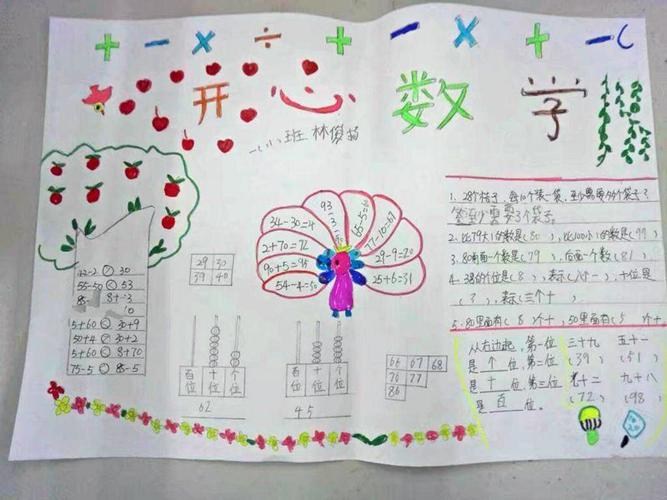 + - × ÷ + - × + -
开心数学
一(八)班 林俊
1. 28个桔子,每10个装一袋,至少需要多少个袋子?
答:至少需要3个袋子。
2. 比79大1的数是(80),比100小1的数是(99)
3. 80前面一个数是(79),后面一个数(81)
4. 38的个位是(8),表示(八个一),十位是
(3),表示(三个十)
5. 80里面有(8)个十,50里面有(5)个十
93-3=
34-30=4
2+70=72
90+5=95
54-4=50
66-5=
77-10=67
29-9=20
25+6=31
30
55-50<53
8+
5+60 30+9
50+4 30+2
5+60 8+70
75-5 85-5
29 30
39 40
百位 十位 个位
62
百位 十位 个位
45
66 67 68
76 77
86
从右边起,第一位
是个位,第二位
是十位,第三位
是百位。
三十九 五十一
(39) (51)
七十二 九十八
(72) (98)